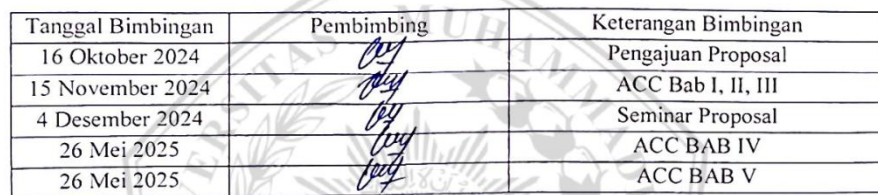 Tanggal Bimbingan Pembimbing Keterangan Bimbingan
16 Oktober 2024 Pengajuan Proposal
15 November 2024 ACC Bab I, II, III
4 Desember 2024 Seminar Proposal
26 Mei 2025 ACC BAB IV
26 Mei 2025 ACC BAB V